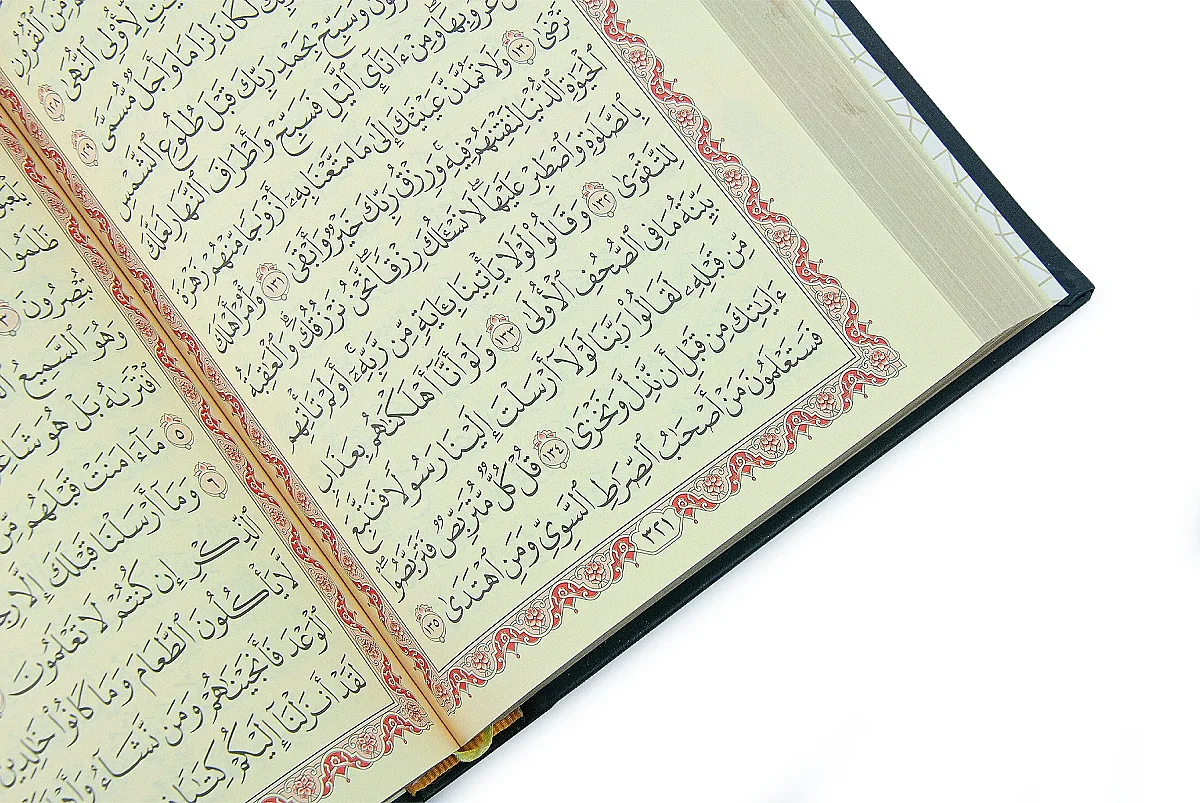 مِّنَ ٱلْقُرُونِ
لِّأُو۟لِى ٱلنُّهَىٰ ١٢٨
لَكَانَ لِزَامًا وَأَجَلٌ مُّسَمًّى ١٢٩
وَسَبِّحْ بِحَمْدِ رَبِّكَ قَبْلَ طُلُوعِ ٱلشَّمْسِ
غُرُوبِهَا وَمِنْ ءَانَآئِ ٱلَّيْلِ فَسَبِّحْ وَأَطْرَافَ ٱلنَّهَارِ لَعَلَّكَ
تَرْضَىٰ ١٣٠ وَلَا تَمُدَّنَّ عَيْنَيْكَ إِلَىٰ مَا مَتَّعْنَا بِهِۦٓ أَزْوَٰجًا مِّنْهُمْ زَهْرَةَ
ٱلْحَيَوٰةِ ٱلدُّنْيَا لِنَفْتِنَهُمْ فِيهِ ۚ وَرِزْقُ رَبِّكَ خَيْرٌ وَأَبْقَىٰ ١٣١ وَأْمُرْ أَهْلَكَ
بِٱلصَّلَوٰةِ وَٱصْطَبِرْ عَلَيْهَا ۖ لَا نَسْـَٔلُكَ رِزْقًا ۖ نَّحْنُ نَرْزُقُكَ ۗ وَٱلْعَـٰقِبَةُ
لِلتَّقْوَىٰ ١٣٢ وَقَالُوا۟ لَوْلَا يَأْتِينَا بِـَٔايَةٍ مِّن رَّبِّهِۦٓ ۚ أَوَلَمْ تَأْتِهِم
بَيِّنَةُ مَا فِى ٱلصُّحُفِ ٱلْأُولَىٰ ١٣٣ وَلَوْ أَنَّآ أَهْلَكْنَـٰهُم بِعَذَابٍ
مِّن قَبْلِهِۦ لَقَالُوا۟ رَبَّنَا لَوْلَآ أَرْسَلْتَ إِلَيْنَا رَسُولًا فَنَتَّبِعَ
ءَايَـٰتِكَ مِن قَبْلِ أَن نَّذِلَّ وَنَخْزَىٰ ١٣٤ قُلْ كُلٌّ مُّتَرَبِّصٌ فَتَرَبَّصُوا۟ ۖ
فَسَتَعْلَمُونَ مَنْ أَصْحَـٰبُ ٱلصِّرَٰطِ ٱلسَّوِىِّ وَمَنِ ٱهْتَدَىٰ ١٣٥
٣٢١
ظَلَمُوا۟
تُبْصِرُونَ ٣
وَهُوَ ٱلسَّمِيعُ
ٱفْتَرَىٰهُ بَلْ هُوَ شَاعِرٌ
٥ مَآ ءَامَنَتْ قَبْلَهُم مِّن
٦ وَمَآ أَرْسَلْنَا قَبْلَكَ إِلَّا
ٱلذِّكْرِ إِن كُنتُمْ لَا تَعْلَمُونَ
لَّا يَأْكُلُونَ ٱلطَّعَامَ وَمَا كَانُوا۟ خَـٰلِدِينَ
ٱلْوَعْدَ فَأَنجَيْنَـٰهُمْ وَمَن نَّشَآءُ
لَقَدْ أَنزَلْنَآ إِلَيْكُمْ كِتَـٰبًا